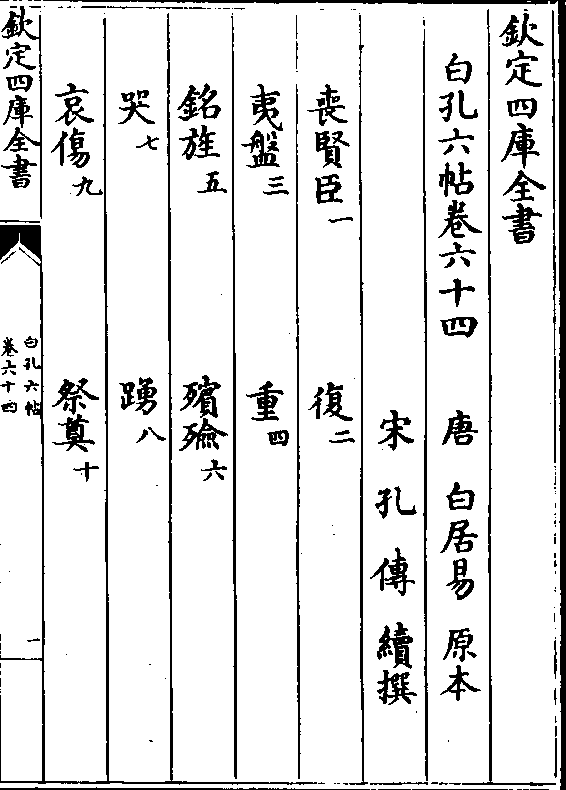 欽定四庫全書
白孔六帖卷六十四　唐　白居易　原本
宋　孔　傳　續撰
喪賢臣一　復二
夷盤三　重四
銘旌五　殯殮六
哭七　踴八
哀傷九　祭奠十
欽定四庫全書
白孔六帖
卷六十四
一